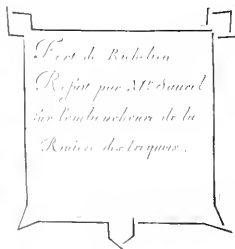 Fort de Richelieu
Refait par Mr. Saurel
sur l'embouchure de la
Rivière des Iroquois.